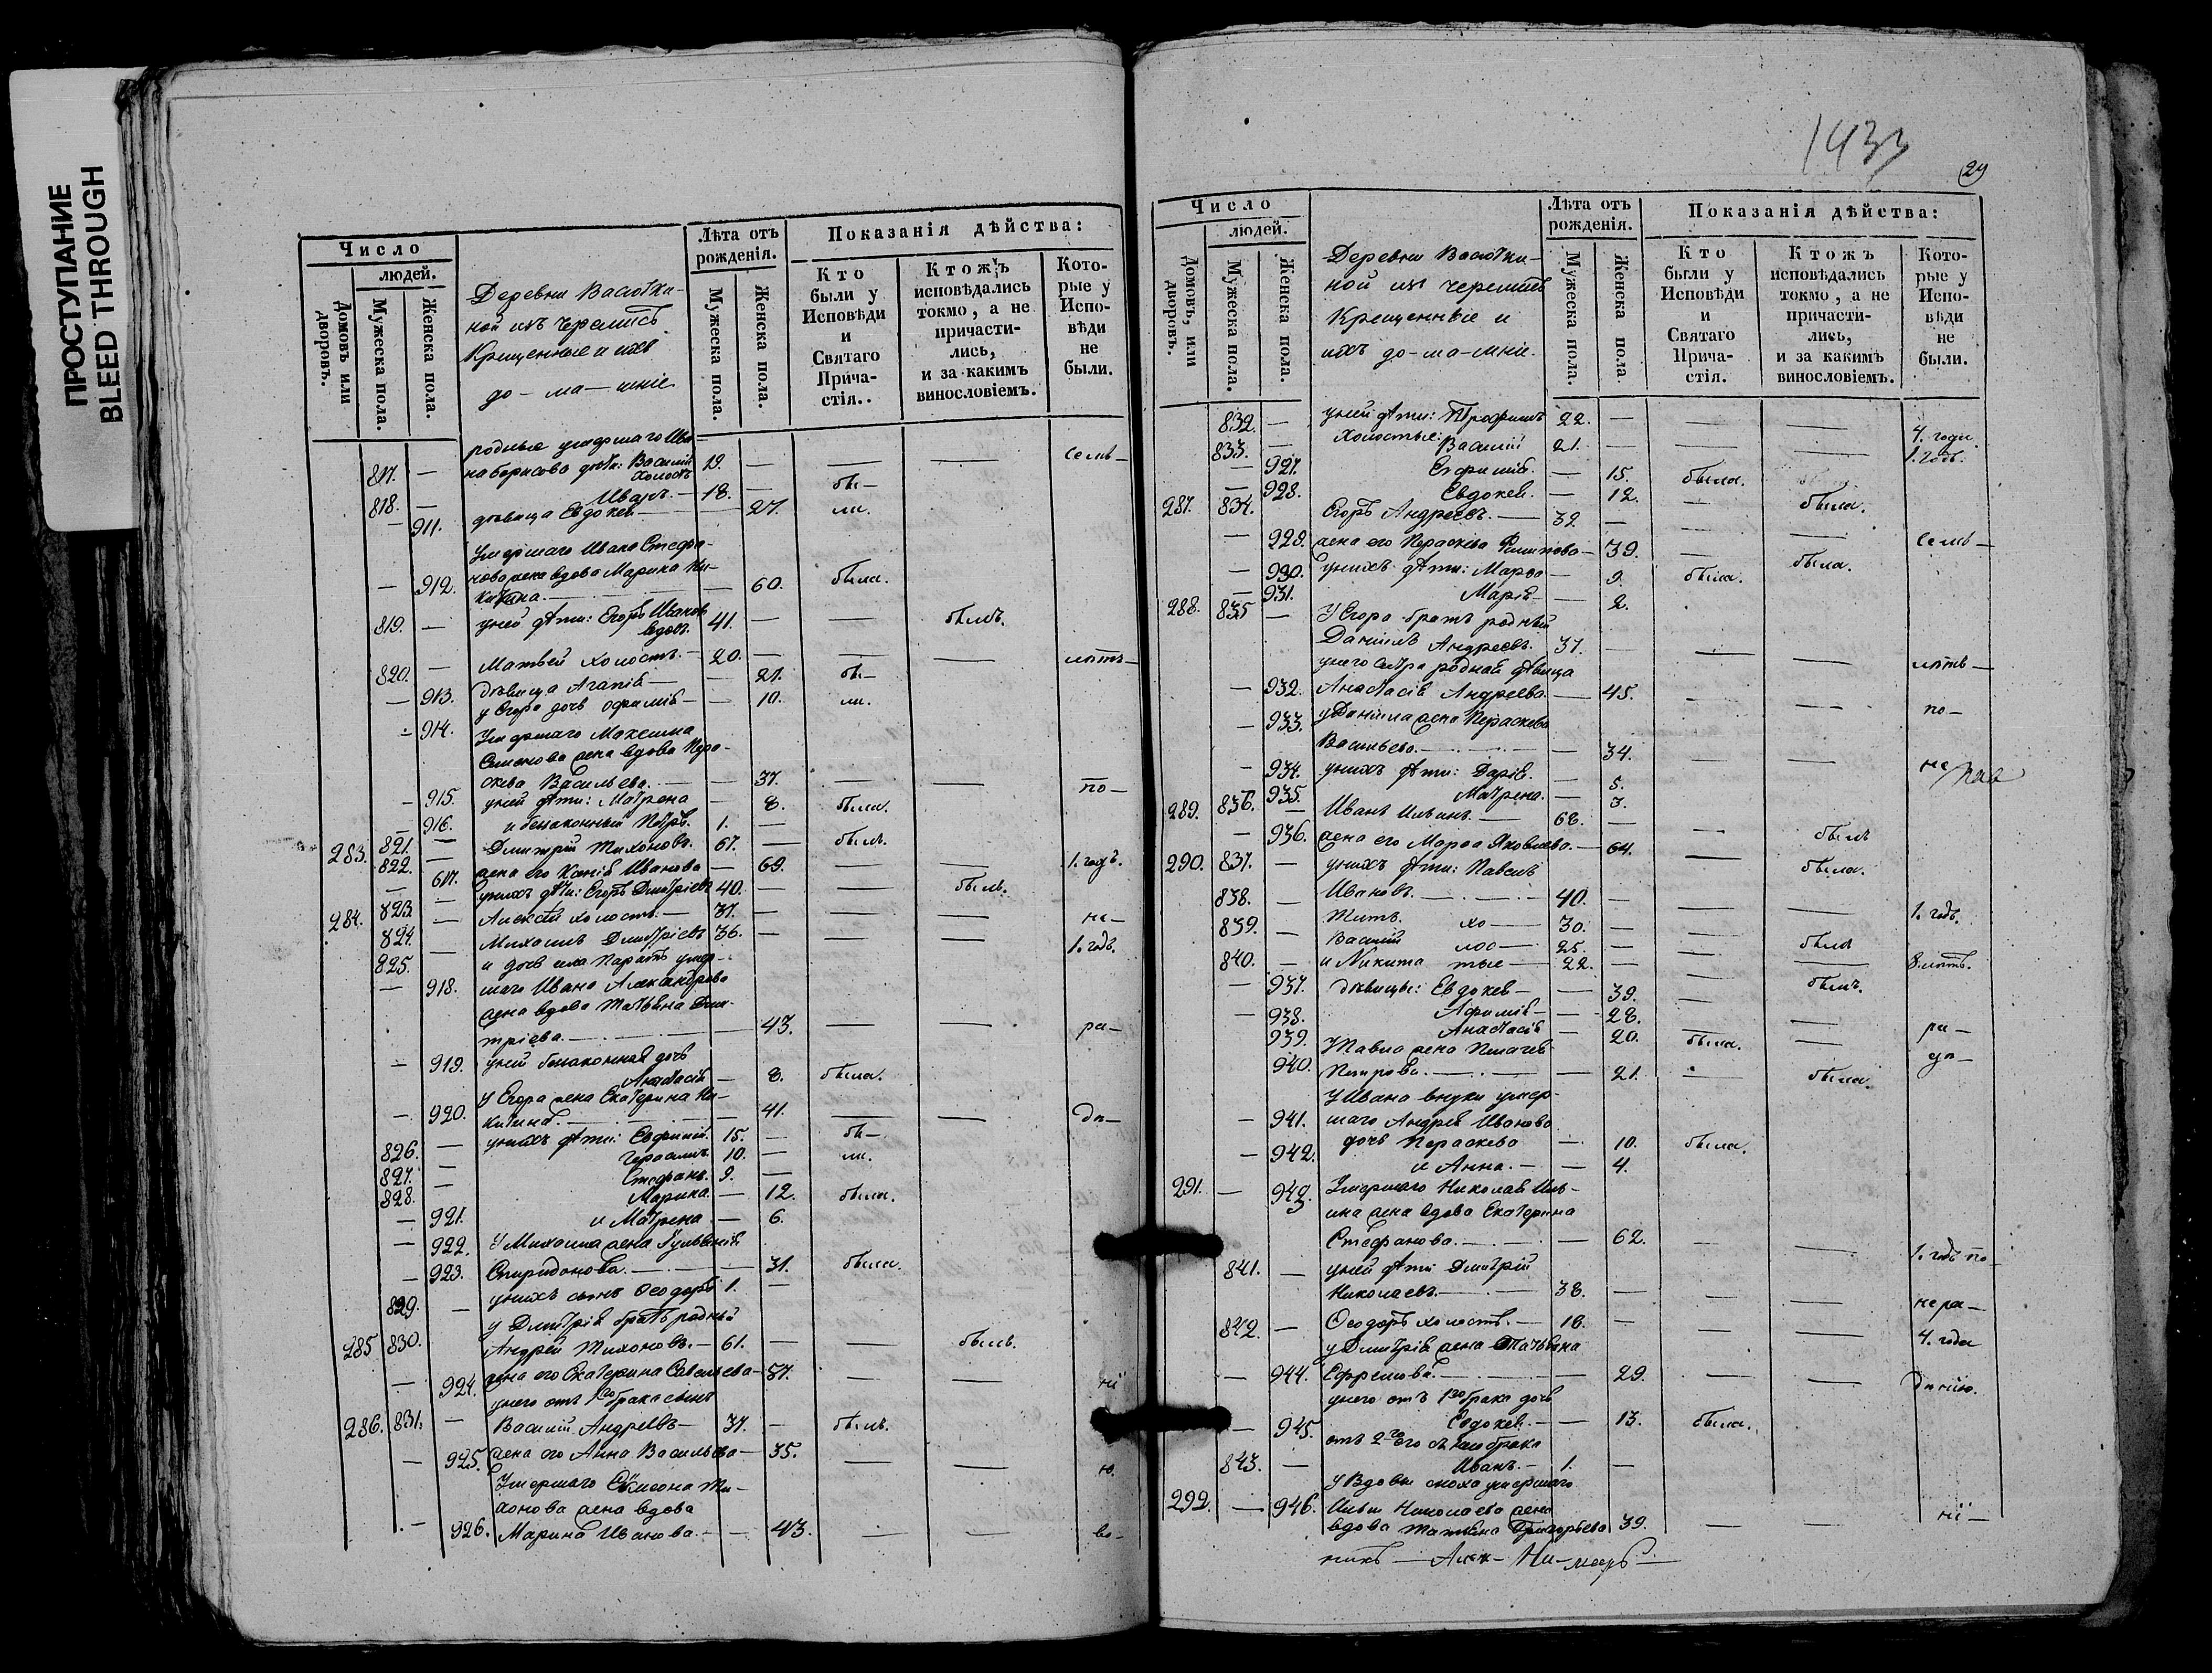 ПРОСТУПАНИЕ
BLEED THROUGH
Число
людей.
Домовъ или дворовъ.
Мужеска пола.
Женска пола.
Деревни Васютки-
ной изъ Черемисъ
Крещенные и ихъ
до-ма-шніе
Лѣта отъ рожденія.
Мужеска пола.
Женска пола.
Показанія дѣйства:
Кто были у Исповѣди и Святаго Прича-стія.
Ктожъ исповѣдались токмо, а не причасти-лись, и за какимъ винословіемъ.
Кото-рые у Испо-вѣди не были.
родные умершаго Ива-
817. — на Борисова дѣти: Василій 19. — — — семь-
холостъ
818. — Иванъ. — 18. — бы-
— 911. дѣвица Евдокея — — 27. ли.
Умершаго Ивана Стефа-
нова жена вдова Марина Ни-
— 912. китина. — — 60. была.
819. — у ней дѣти: Егоръ Ивановъ 41. — — былъ.
вдовъ.
820. — Матвей холостъ. — 20. — — — лѣтъ-
— 913. дѣвица Агапія — — 21. бы-
— 914. у Егора дочь Офимія — — 10. ли.
Умершаго Максима
Семенова жена вдова Пара-
— 915. скева Васильева. — — 37. — — по-
— 916. у ней дѣти: Матрена — 8. была.
и беззаконный Петръ. 1. —
283. 821. — Дмитрій Тихоновъ. 67. — былъ.
822. 917. жена его Ксенія Иванова — 69. — — 1. годъ.
823. — у нихъ дѣти: Егоръ Дмитріевъ 40. — — былъ.
284. 824. — Алексѣй холостъ. — 37. — — — не-
825. — Михаилъ Дмитріевъ 36. — — — 1. годъ.
— 918. шаго Ивана Александрова
жена вдова Татьяна Дми-
тріева. — — 43. — — ра-
— 919. у ней беззаконная дочь
Анастасія — 8. была.
— 920. У Егора жена Екатерина Ни-
китина. — — 41. — — дѣ-
826. — у нихъ дѣти: Евфимій. 15. — бы-
827. — Герасимъ. 10. — ли.
828. — Стефанъ. 9. —
— 921. Марина. — 12. была.
— 922. и Матрена — 6.
— 923. У Михаила жена
Спиридонова. — — 31. была.
829. — у нихъ сынъ Ѳеодоръ 1. —
у Дмитрія братъ родный
285 830. Андрей Тихоновъ. — 61. — — былъ.
— 924. жена его Екатерина Савельева — 57. — — нi
у него отъ 1го брака сынъ
286. 831. — Василій Андреевъ — 37. — былъ.
— 925. жена его Анна Васильева — 35. — — ю.
Умершаго Симеона Ти-
хонова жена вдова
— 926. Марина Иванова. — — 43. — — во-
1433
29
Число
людей.
Домовъ, или дворовъ.
Мужеска пола.
Женска пола.
Деревни Васютки-
ной изъ черемисъ
Крещенные и
ихъ до-ма-шніе.
Лѣта отъ рожденія.
Мужеска пола.
Женска пола.
Показанія дѣйства:
Кто были у Исповѣди и Святаго Прича-стія.
Ктожъ исповѣдались токмо, а не причасти-лись, и за какимъ винословіемъ.
Кото-рые у Испо-вѣди не были.
832. — у ней дѣти: Трофимъ 22. — — — 4. годы.
833. — холостые: Василій 21. — — — 1. годъ.
— 927. Евфимія. — 15. была.
— 928. Евдокея. — 12.
287. 834. Егоръ Андреевъ. — 39. — — была.
— 929. жена его Параскева Филипова — 39. — — семь-
— 930. у нихъ дѣти: Марѳа — 9. была. была.
— 931. Марія — — 2.
288. 835 — У Егора братъ родный
Даніилъ Андреевъ. 37. — — — лѣтъ-
у него сестра родная дѣвица
— 932. Анастасія Андреева. — 45. — — по-
— 933. у Даніила жена Параскева
Васильева. — — 34. — — не
— 934. у нихъ дѣти: Дарія. — 5.
— 935. Матрена. — 3.
289. 836. — Иванъ Ильинъ. — 68. — — былъ
— 936. жена его Марѳа Яковлева. — 64. — была.
290. 837. — у нихъ дѣти: Павелъ
Ивановъ. — 40. — — — 1. годъ.
838. — Титъ. хо — 30. — — былъ
839. — Василій лос — 25. — — — 8. лѣтъ.
840. — и Никита тые — 22. — — былъ.
— 937. дѣвицы: Евдокея — — 39. — — ра-
— 938. Афимія — — 28. — —
939. Анастасія — 20. была.
940. У Павла жена Пелагея
Петрова. — — 21. — была.
У Ивана внуки умер-
— 941. шаго Андрея Иванова
дочь Параскева — 10. была.
— 942. и Анна. — — 4.
291. — 943. Умершаго Николая Иль-
ина жена вдова Екатерина
Стефанова. — — 62. — — 1. годъ по-
841. — у ней дѣти Дмитрій
Николаевъ. — 38. — — — нера-
842. — Ѳеодоръ холостъ. — 18. — — — 4. годы
у Дмитрія жена Татьяна
— 944. Ефремова. — — 29. — — дѣнію.
у него отъ 1го брака дочь
— 945. Евдокея. — — 13. была.
843. — Иванъ — 1. —
У Вдовы сноха умершаго
292. — 946. Ильи Николаева жена
вдова Татьяна Григорьева 39. — — нi-